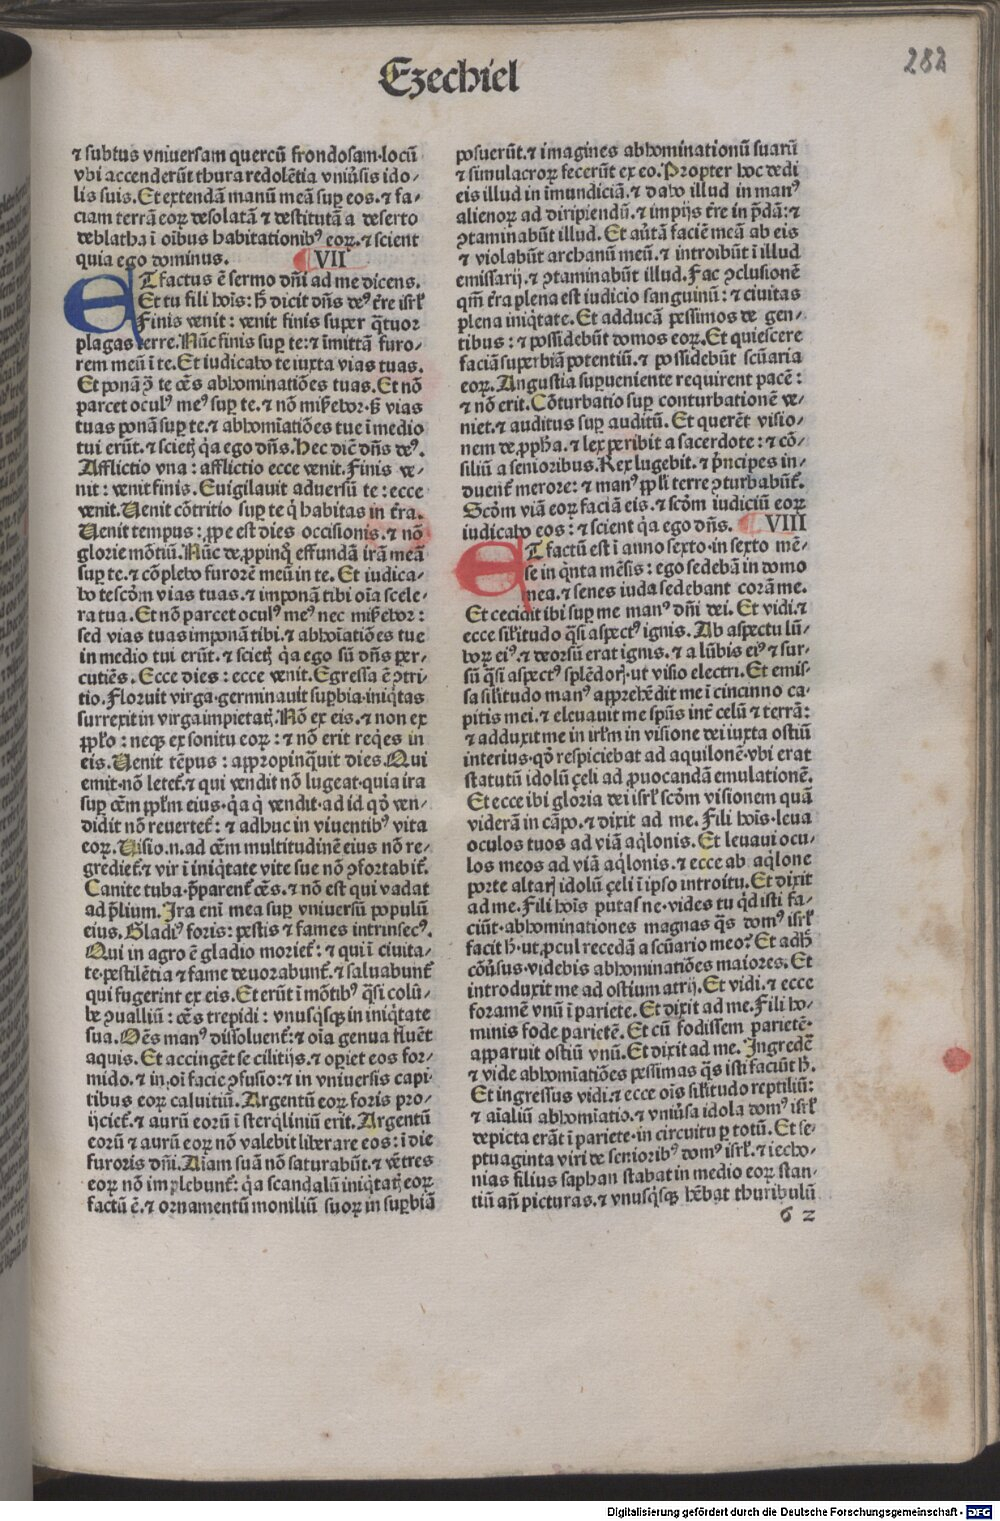 Ezechiel
282
⁊ subtus vniuersam quercū frondosam·locū
vbi accenderūt thura redolētia vniūsis ido⸗
lis suis. Et extendā manū meā suꝑ eos. ⁊ fa⸗
ciam terrā eoꝝ desolatā ⁊ destitutā a deserto
deblatha ī oībus habitationibꝰ eoꝝ. ⁊ scient
quia ego dominus. VII
ET factus ē sermo dn̄i ad me dicens.
Et tu fili hoīs: h̄ dicit dn̄s deꝰ t̄re isrl̄
Finis venit: venit finis super q̄tuor
plagas terre. Nūc finis suꝑ te: ⁊ īmittā furo⸗
rem meū ī te. Et iudicabo te iuxta vias tuas.
Et ponā ꝯ̄ te oēs abhominatiōes tuas. Et nō
parcet oculꝰ meꝰ suꝑ te. ⁊ nō mis̄ebor. s̄ vias
tuas ponā suꝑ te. ⁊ abhoīatiōes tue ī medio
tui erūt. ⁊ scietꝭ q̇a ego dn̄s. Hec dic̄ dn̄s deꝰ.
Afflictio vna: afflictio ecce venit. Finis ve⸗
nit: venit finis. Euigilauit aduersū te: ecce
venit. Uenit cōtritio suꝑ te q̇ habitas in t̄ra.
Uenit tempus: ꝓpe est dies occisionis. ⁊ nō
glorie mōtiū. Nūc de ꝓpinq̊ effundā irā meā
suꝑ te. ⁊ cōplebo furorē meū in te. Et iudica⸗
bo te scōm vias tuas. ⁊ imponā tibi oīa scele⸗
ra tua. Et nō parcet oculꝰ meꝰ nec mis̄ebor:
sed vias tuas imponā tibi. ⁊ abhoīatiōes tue
in medio tui erūt. ⁊ scietꝭ q̇a ego sū dn̄s per⸗
cutiēs. Ecce dies: ecce venit. Egressa ē ꝯtri⸗
tio. Floruit virga·germinauit suꝑbia·iniq̇tas
surrexit in virga impietatꝭ. Nō ex eis. ⁊ non ex
pplo: neqꝫ ex sonitu eoꝝ: ⁊ nō erit req̇es in
eis. Uenit tēpus: appropinq̄uit dies. Qui
emit·nō letet᷑. ⁊ qui vendit nō lugeat·quia ira
suꝑ oēm pplm eius·q̇a q̇ vendit·ad id qd̓ ven⸗
didit nō reuertet᷑: ⁊ adhuc in viuentibꝰ vita
eoꝝ. Uisio .n. ad oēm multitudinē eius nō re⸗
grediet᷑. ⁊ vir ī iniq̇tate vite sue nō ꝯfortabit᷑.
Canite tuba·p̄parent᷑ oēs. ⁊ nō est qui vadat
ad p̄lium. Ira enī mea suꝑ vniuersū populū
eius. Gladiꝰ foris: pestis ⁊ fames intrinsecꝰ.
Qui in agro ē gladio moriet᷑: ⁊ qui ī ciuita⸗
te·pestilētia ⁊ fame deuorabunt᷑. ⁊ saluabunt᷑
qui fugerint ex eis. Et erūt ī mōtibꝰ q̄si colū⸗
be ꝯualliū: oēs trepidi: vnusq̇sqꝫ in iniq̇tate
sua. Oēs manꝰ dissoluent᷑: ⁊ oīa genua fluēt
aquis. Et accingēt se cilitijs. ⁊ oꝑiet eos for⸗
mido. ⁊ in oī facie ꝯfusio: ⁊ in vniuersis capi
tibus eoꝝ caluitiū. Argentū eoꝝ foris pro⸗
ijciet᷑. ⁊ aurū eorū ī sterq̇liniū erit. Argentū
eorū ⁊ aurū eoꝝ nō valebit liberare eos: ī die
furoris dn̄i. Aīam suā nō saturabūt. ⁊ vētres
eoꝝ nō implebunt᷑: q̇a scandalū iniq̇tatꝭ eoꝝ
factū ē. ⁊ ornamentū moniliū suoꝝ in suꝑbiā
posuerūt. ⁊ imagines abhominationū suarū
⁊ simulacroꝝ fecerūt ex eo. Propter hoc dedi
eis illud in īmundiciā. ⁊ dabo illud in manꝰ
alienoꝝ ad diripiendū. ⁊ impijs t̄re in p̄dā: ⁊
ꝯtaminabūt illud. Et aūtā faciē meā ab eis
⁊ violabūt archanū meū. ⁊ introibūt ī illud
emissarij. ⁊ ꝯtaminabūt illud. Fac ꝯclusionē
qm̄ t̄ra plena est iudicio sanguinū: ⁊ ciuitas
plena iniq̇tate. Et adducā pessimos de gen⸗
tibus: ⁊ possidebūt domos eoꝝ. Et quiescere
faciā superbiā potentiū. ⁊ possidebūt scūaria
eoꝝ. Angustia suꝑueniente requirent pacē:
⁊ nō erit. Cōturbatio suꝑ conturbationē ve⸗
niet. ⁊ auditus suꝑ auditū. Et querēt visio⸗
nem de ꝓpha. ⁊ lex peribit a sacerdote: ⁊ cō⸗
siliū a senioribus. Rex lugebit. ⁊ ṗncipes in⸗
duent᷑ merore: ⁊ manꝰ ppli terre ꝯturbabūt᷑.
Scōm viā eoꝝ faciā eis. ⁊ scōm iudiciū eoꝝ
iudicabo eos: ⁊ scient q̇a ego dn̄s. VIII
ET factū est ī anno sexto·in sexto mē⸗
se in q̇nta mēsis: ego sedebā in domo
mea. ⁊ senes iuda sedebant corā me.
Et cecidit ibi suꝑ me manꝰ dn̄i dei. Et vidi. ⁊
ecce sil̄itudo q̄si aspectꝰ ignis. Ab aspectu lū⸗
boꝝ eiꝰ. ⁊ deorsū erat ignis. ⁊ a lūbis eiꝰ ⁊ sur⸗
sū q̄si aspectꝰ splēdorꝭ·ut visio electri. Et emis⸗
sa sil̄itudo manꝰ apprehēdit me ī cincinno ca⸗
pitis mei. ⁊ eleuauit me spūs int̄ celū ⁊ terrā:
⁊ adduxit me in irl̄m in visione dei iuxta ostiū
interius·qd̓ respiciebat ad aquilonē·vbi erat
statutū idolū çeli ad ꝓuocandā emulationē.
Et ecce ibi gloria dei isrl̄ scōm visionem quā
viderā in cāpo. ⁊ dixit ad me. Fili hoīs·leua
oculos tuos ad viā aq̇lonis. Et leuaui ocu⸗
los meos ad viā aq̇lonis. ⁊ ecce ab aq̇lone
porte altarꝭ idolū çeli ī ipso introitu. Et dixit
ad me. Fili hoīs putasne·vides tu qd̓ isti fa⸗
ciūt·abhominationes magnas q̄s domꝰ isrl̄
facit h̄·ut ꝓcul recedā a scūario meo? Et adh̓
cōūsus·videbis abhominatiōes maiores. Et
introduxit me ad ostium atrij. Et vidi. ⁊ ecce
foramē vnū ī pariete. Et dixit ad me. Fili ho⸗
minis fode parietē. Et cū fodissem parietē·
apparuit ostiū vnū. Et dixit ad me. Ingredē
⁊ vide abhoīatiōes pessimas q̄s isti faciūt h̄.
Et ingressus vidi. ⁊ ecce oīs sil̄itudo reptiliū:
⁊ aīaliū abhoīatio. ⁊ vniūsa idola domꝰ isrl̄
depicta erāt ī pariete·in circuitu ꝑ totū. Et se⸗
ptuaginta viri de senioribꝰ domꝰ isrl̄. ⁊ iecho⸗
nias filius saphan stabat in medio eoꝝ stan⸗
tiū an̄ picturas. ⁊ vnusq̇sqꝫ hēbat thuribulū
6 2
Digitalisierung gefördert durch die Deutsche Forschungsgemeinschaft - DFG